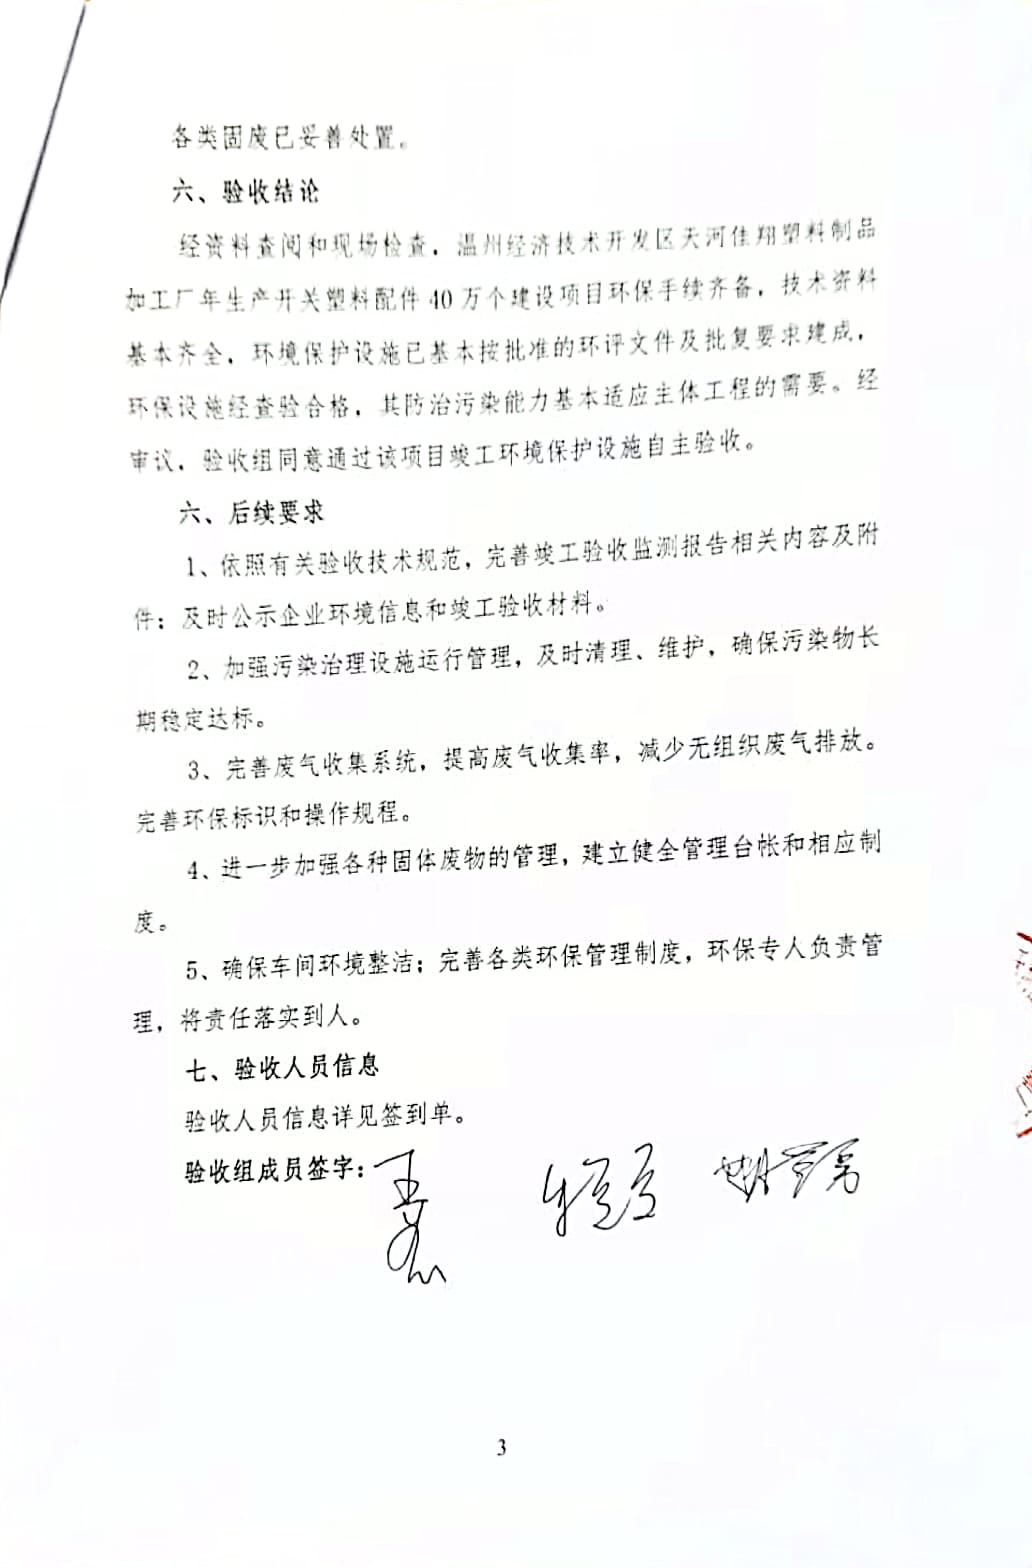 各类固废已妥善处置。
六、验收结论
经资料查阅和现场检查，温州经济技术开发区天河佳翔塑料制品
加工厂年生产开关塑料配件40万个建设项目环保手续齐备，技术资料
基本齐全，环境保护设施已基本按批准的环评文件及批复要求建成，
环保设施经查验合格，其防治污染能力基本适应主体工程的需要。经
审议，验收组同意通过该项目竣工环境保护设施自主验收。
六、后续要求
1、依照有关验收技术规范，完善竣工验收监测报告相关内容及附
件；及时公示企业环境信息和竣工验收材料。
2、加强污染治理设施运行管理，及时清理、维护，确保污染物长
期稳定达标。
3、完善废气收集系统，提高废气收集率，减少无组织废气排放。
完善环保标识和操作规程。
4、进一步加强各种固体废物的管理，建立健全管理台帐和相应制
度。
5、确保车间环境整洁；完善各类环保管理制度，环保专人负责管
理，将责任落实到人。
七、验收人员信息
验收人员信息详见签到单。
验收组成员签字：
3